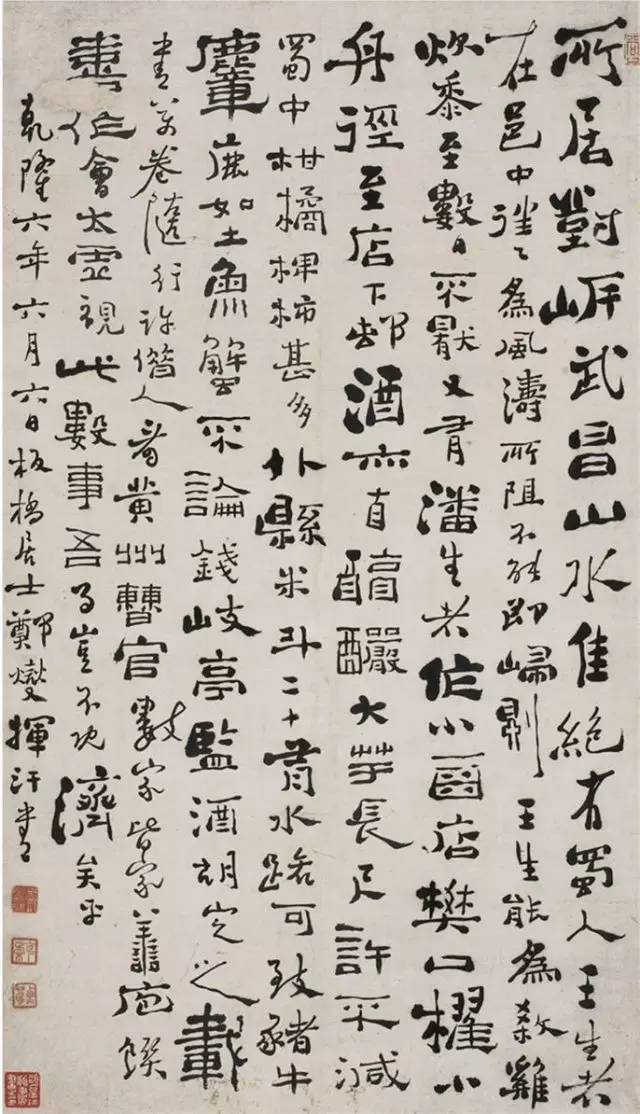 所居對岸武昌山水佳絕有蜀人王生者
在邑中往々為風濤所阻不能即歸則王生能為殺雞
炊黍至數日不厭又有潘生者作小酉店樊口櫂小
舟徑至店下邨酒亦自醇釅大芋長尺許不減
蜀中柑橘椑柿甚多外縣米斗二十有水路可致豬牛
麞鹿如土魚蟹不論錢岐亭監酒胡定之載
書萬卷隨行許借人看黃州曹官數家皆家善庖饌
喜作會太虛視此數事吾豈不既濟矣乎
乾隆六年六月六日板橋居士鄭燮揮汗書